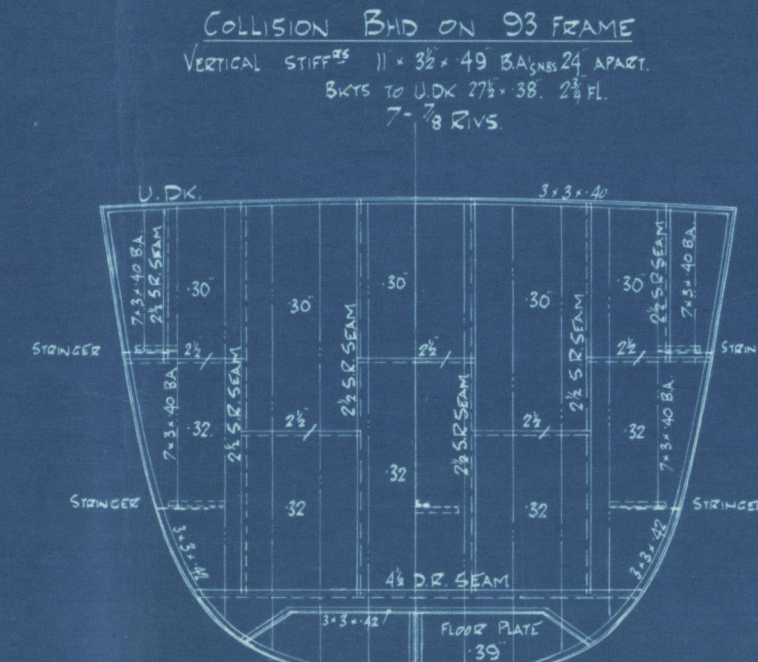 COLLISION BHD ON 93 FRAME
VERTICAL STIFFRS 11" × 3½ × ·49 B.A. SNBS 24" APART.
BKTS TO U.DK 27½ × ·38. 2¾ FL.
7 - ⅞ RIVS.
U. DK.
3 × 3 × ·40
7 × 3 × ·40 B.A.
2½ S.R SEAM
·30"
·30"
·30"
·30"
·30"
2½ S.R SEAM
7 × 3 × ·40 B.A.
STRINGER
2½
2½"
2½
STRIN
7 × 3 × ·40 BA
·32
2½ S.R SEAM
2½ S.R SEAM
2½ S.R SEAM
2½ S.R SEAM
·32
7 × 3 × ·40 BA
2½"
2½
·32
STRINGER
·32
·32
STRINGER
3 × 3 × ·42
3 × 3 × ·42
4½ D.R. SEAM
3 × 3 × ·42
FLOOR PLATE
·39"